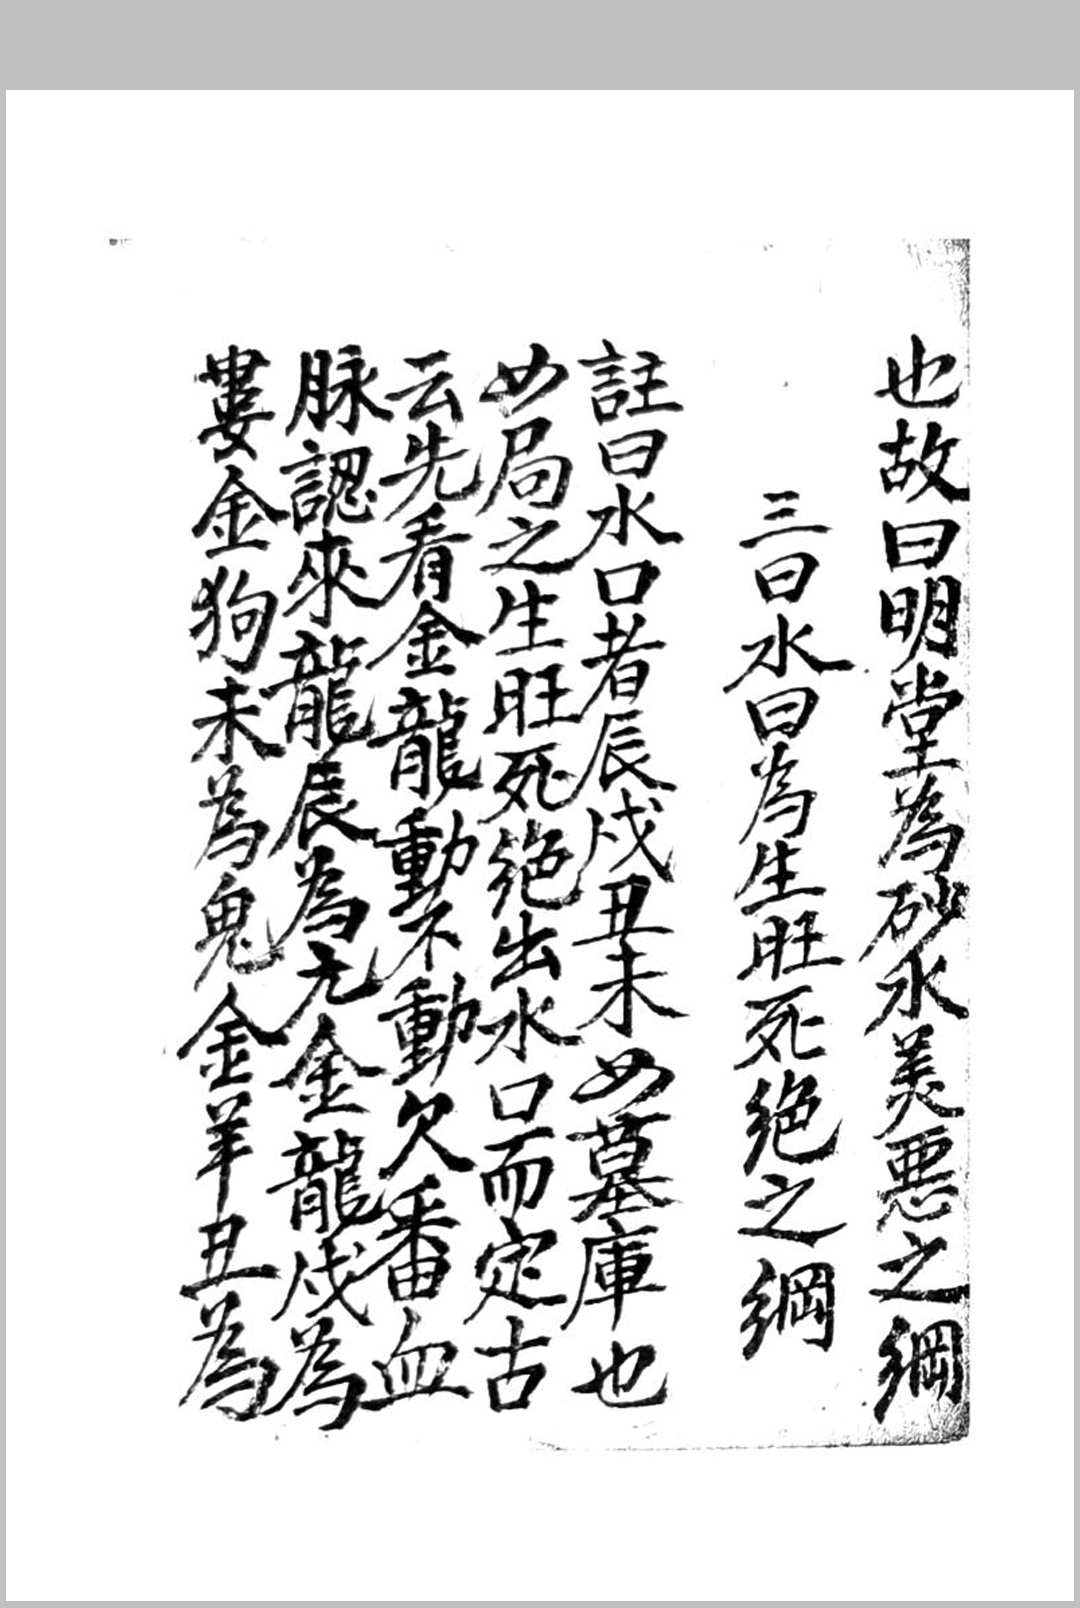 也故曰明堂為砂水美悪之綱
三曰水曰為生旺死絶之綱
註曰水口者辰戍丑未如墓庫也
如局之生旺死絶出水口而定古
云先看金龍動不動欠番血
脉認來龍辰為亢金龍戍為
婁金狗未為鬼金羊丑為